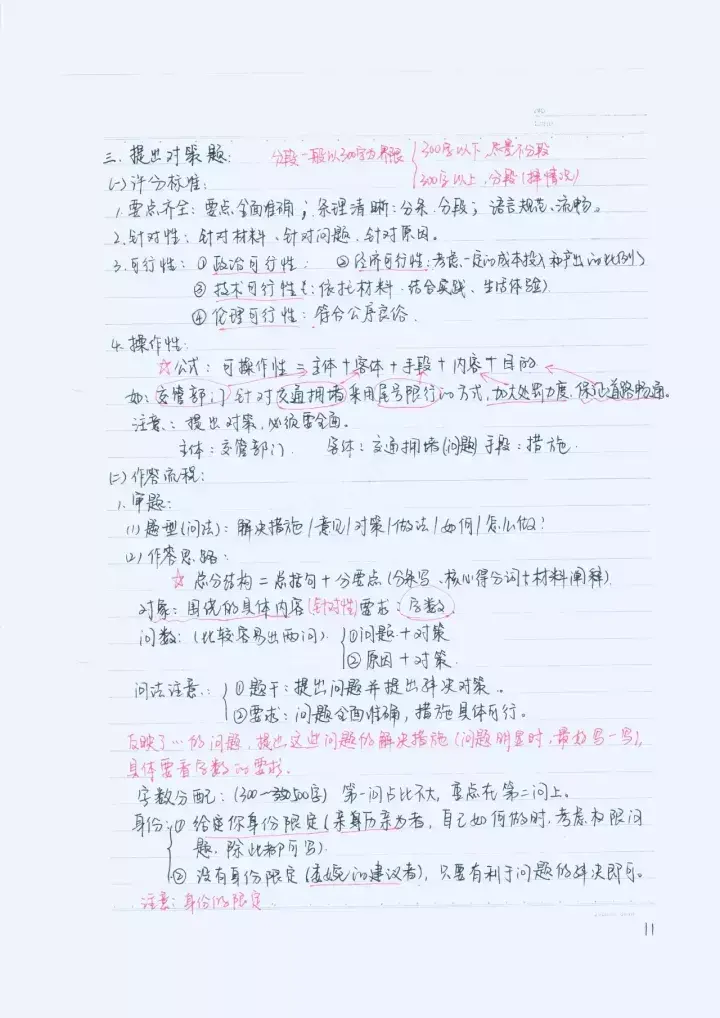 三.提出对策题: 分段一般以300字为界限 {300字以下,尽量不分段
300字以上,分段(择情况)
(一)评分标准:
1.要点齐全:要点全面准确;条理清晰:分条.分段;语言规范.流畅。
2.针对性:针对材料、针对问题.针对原因。
3.可行性:①政治可行性: ②经济可行性:考虑一定的成本投入和产出的比例
③技术可行性:依托材料.结合实践、生活体验
④伦理可行性:符合公序良俗.
4.操作性:
☆公式:可操作性=主体+客体+手段+内容+目的
如:交管部门针对交通拥堵采用尾号限行的方式,加大处罚力度.保证道路畅通。
注意:提出对策,必须要全面。
主体:交管部门. 客体:交通拥堵(问题) 手段:措施.
(二)作答流程:
1.审题:
(1)题型(问法):解决措施/意见/对策/做法/如何/怎么做?
(2)作答思路:
☆总分结构=总括句+分要点(分条写、核心得分词+材料阐释)
对象:围绕的具体内容(针对性)要求:字数
问数:(比较容易出两问).{①问题+对策
②原因+对策.
问法注意:{①题干:提出问题并提出解决对策。
②要求:问题全面准确,措施具体可行。
反映了…的问题,提出这些问题的解决措施(问题明显时,最好写一写),
具体要看字数的要求.
字数分配:(300-500字) 第一问占比不大,重点在第二问上。
身份:{①给定你身份限定(亲身历亲为者,自己如何做时,考虑权限问
题.除此都可写).
②没有身份限定(委婉的建议者),只要有利于问题的解决即可。
注意:身份的限定
11